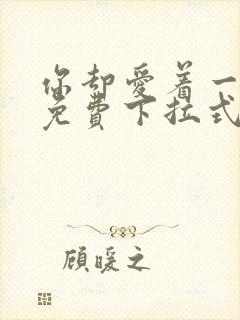 你却爱着一
免费下拉式
顾暖之